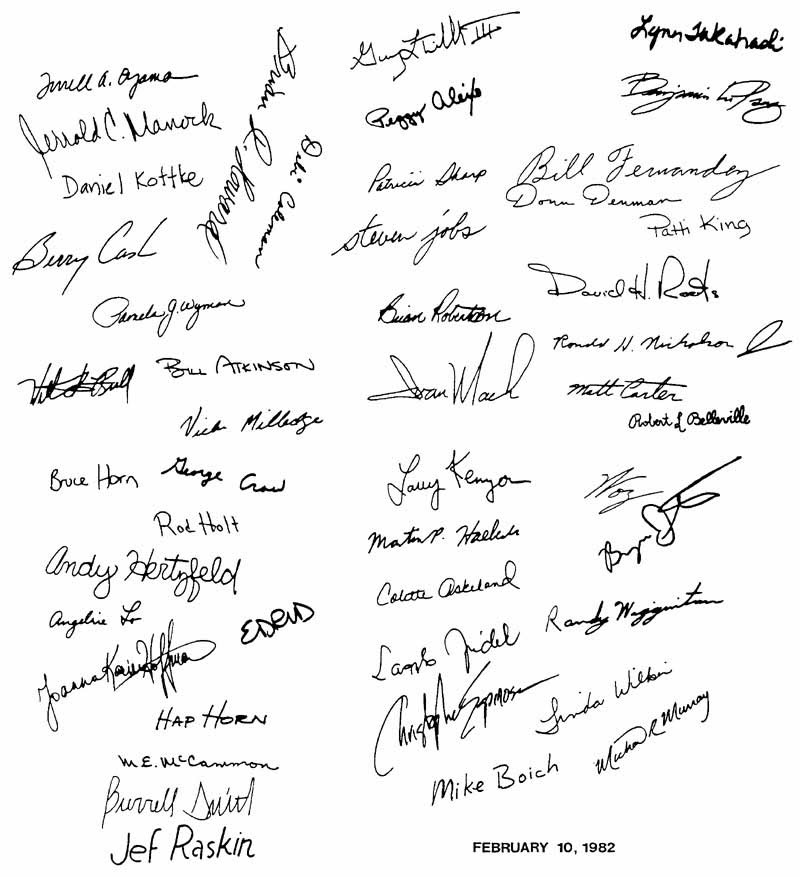 Terrell A. Oyama
Jerrold C. Manock
Daniel Kottke
Brian R. Howard
Debi Coleman
Berry Cash
Pamela J. Wyman
Bill Atkinson
Vicki Milledge
Bruce Horn
George Crow
Rod Holt
Andy Hertzfeld
Angeline Lo
Joanna Karin Hoffman
HAP HORN
M.E. McCammon
Burrell Smith
Jef Raskin
Peggy Alexio
Patricia Sharp
steven jobs
Brian Robertson
Ivan Mach
Larry Kenyon
Martin P. Haeberli
Colette Askeland
Laszlo Zidek
Christopher Espinosa
Mike Boich
Lynn Takahashi
Benjamin
Bill Fernandez
Donn Denman
Patti King
David H. Roots
Ronald H. Nicholson Jr
Matt Carter
Robert L Belleville
Woz
Randy Wigginton
Linda Wilkin
Michael R Murray
FEBRUARY 10, 1982